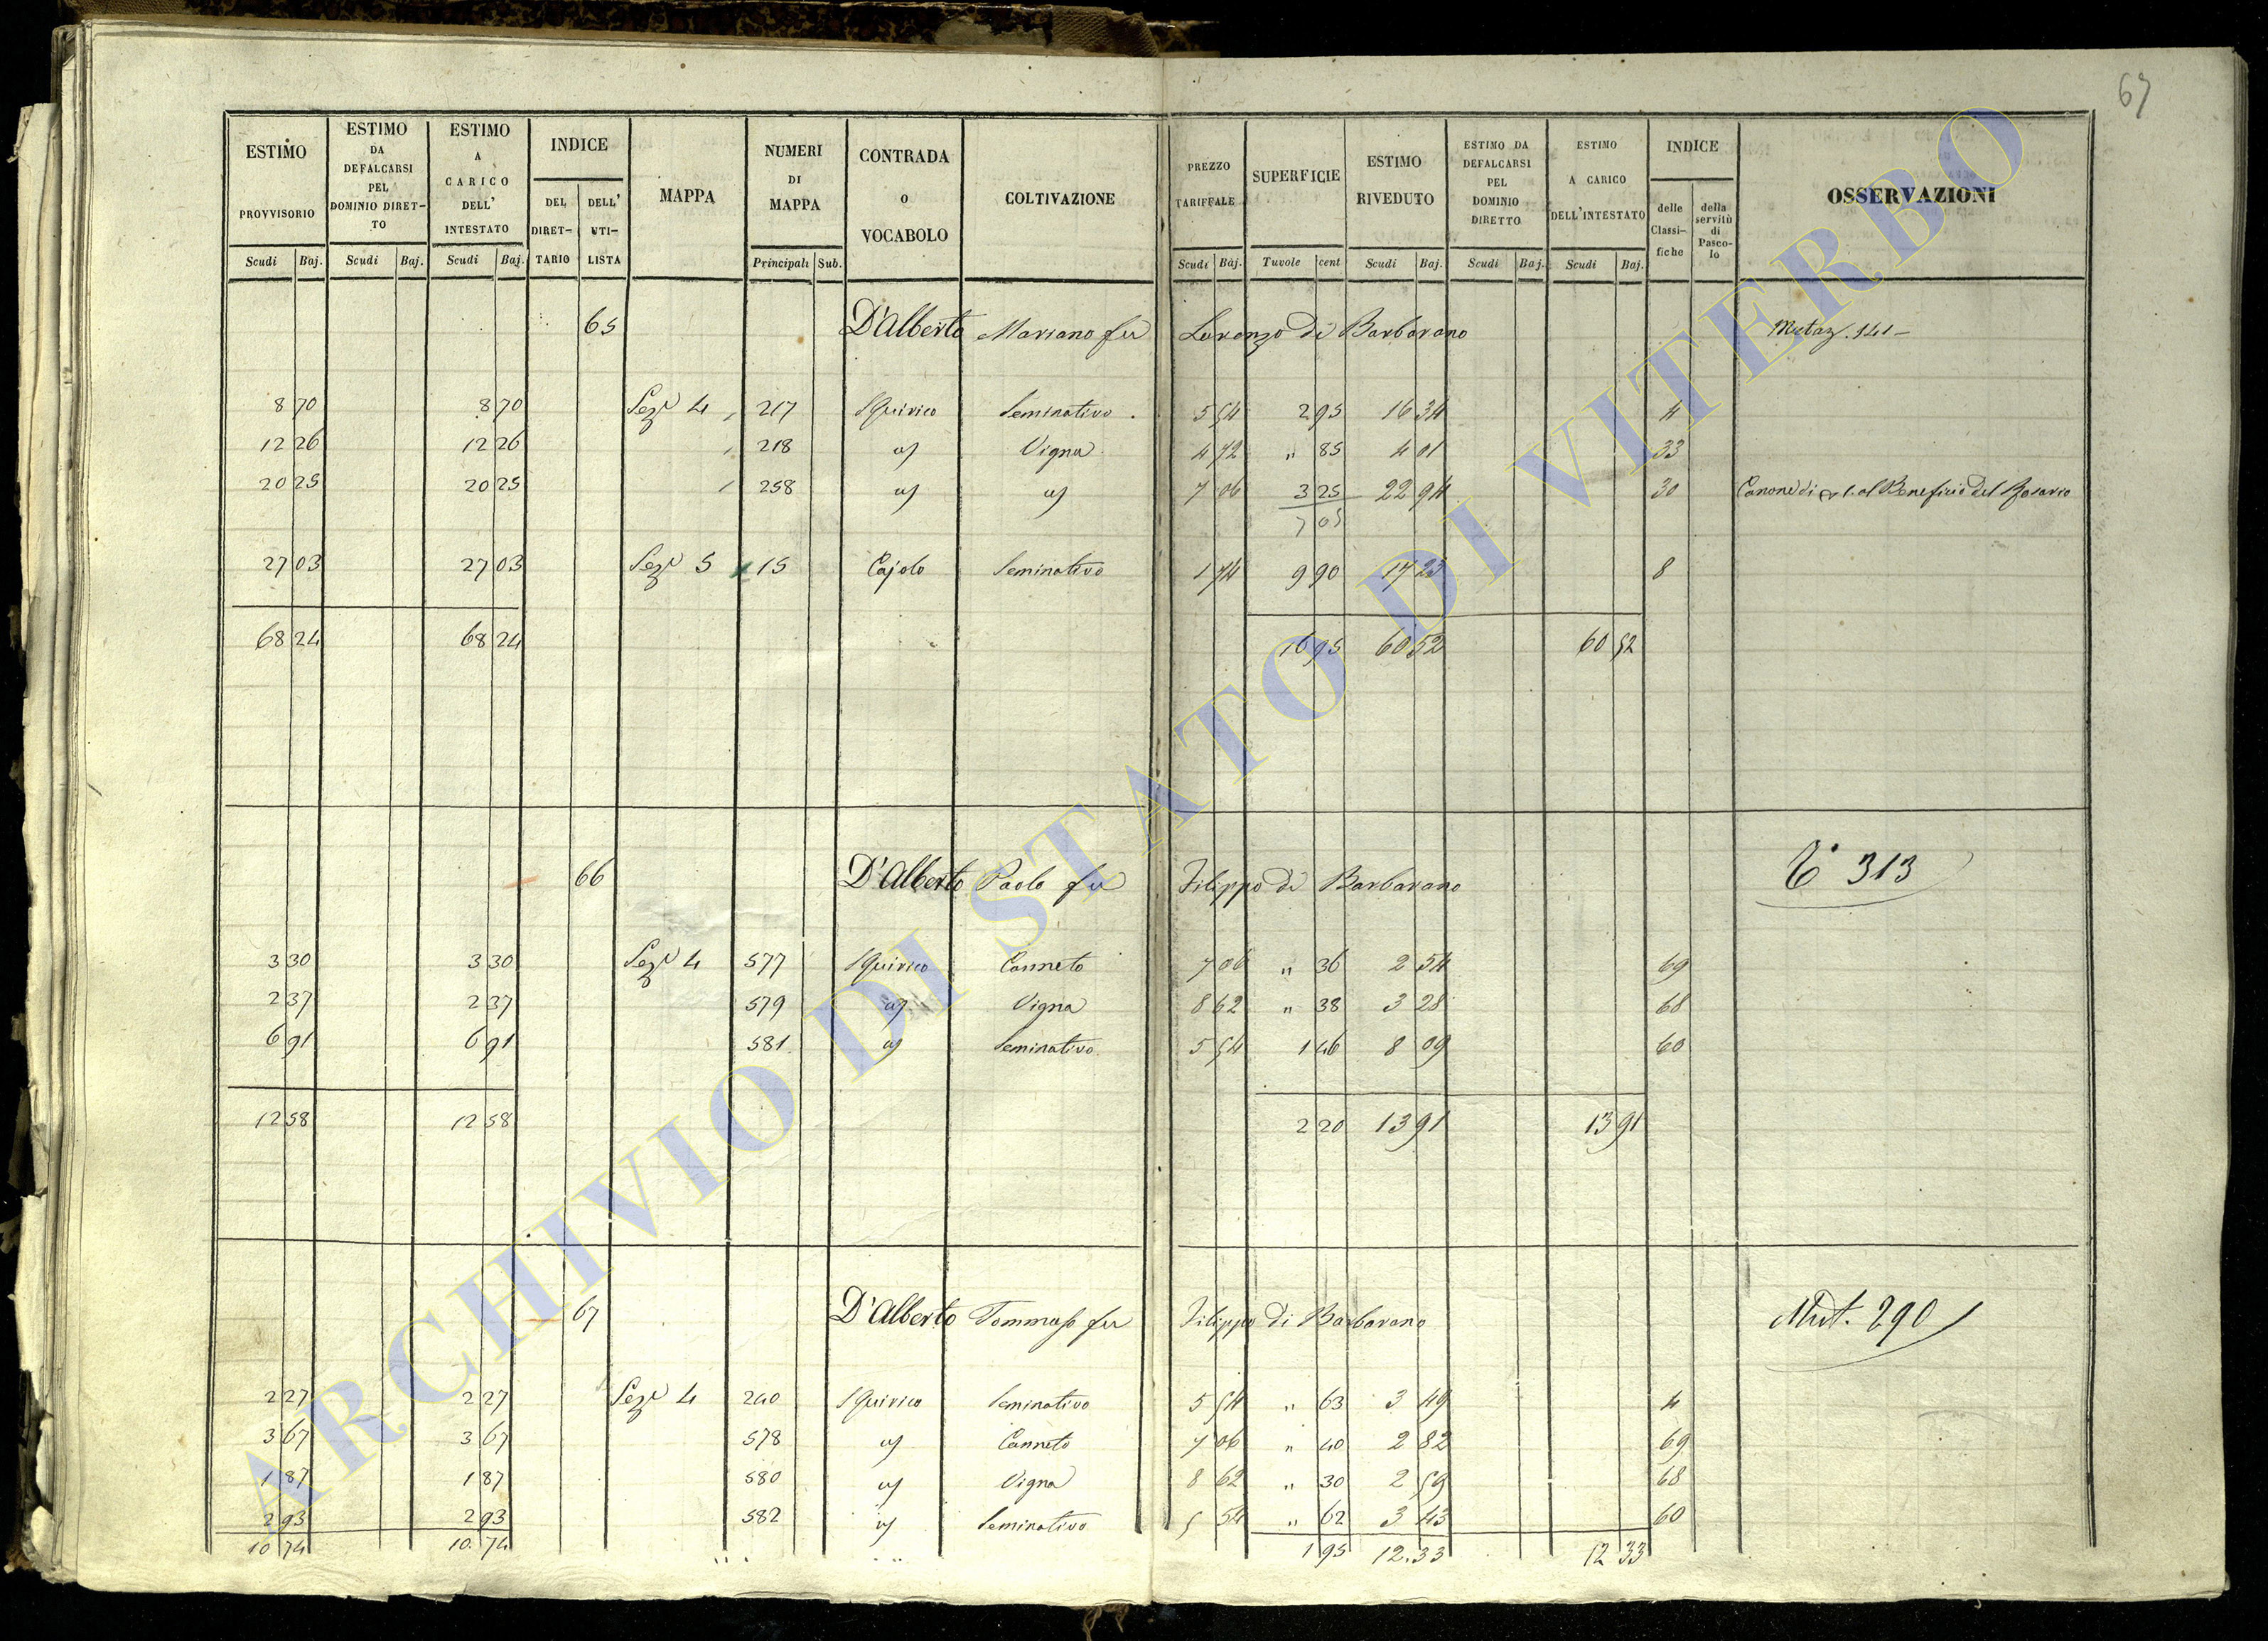 67
ESTIMO PROVVISORIO Scudi Baj. | ESTIMO DA DEFALCARSI PEL DOMINIO DIRETTO Scudi Baj. | ESTIMO A CARICO DELL' INTESTATO Scudi Baj. | INDICE DEL DIRET-TARIO DELL' UTI-LISTA | MAPPA | NUMERI DI MAPPA Principali Sub. | CONTRADA O VOCABOLO | COLTIVAZIONE | PREZZO TARIFFALE Scudi Baj. | SUPERFICIE Tavole cent | ESTIMO RIVEDUTO Scudi Baj. | ESTIMO DA DEFALCARSI PEL DOMINIO DIRETTO Scudi Baj. | ESTIMO A CARICO DELL'INTESTATO Scudi Baj. | INDICE delle Classi-fiche della servitù di Pasco-lo | OSSERVAZIONI
65 D'Alberto Mariano fu Lorenzo di Barbarano Mutaz. 141-
8 70 8 70 Sezn 4 217 S Quirico Seminativo 5 54 2 95 16 34 4
12 26 12 26 218 " Vigna 4 72 " 85 4 01 33
20 25 20 25 258 " " 7 06 3 25 22 94 30 Canone di al Beneficio del Rosario
7 05
27 03 27 03 Sezn 5 15 Cajolo Seminativo 1 74 9 90 17 23 8
68 24 68 24 16 95 60 52 60 52
66 D'Alberto Paolo fu Filippo di Barbarano 313
3 30 3 30 Sezn 4 577 S Quirico Canneto 7 06 " 36 2 54 69
2 37 2 37 579 " Vigna 8 62 " 38 3 28 68
6 91 6 91 581 " Seminativo 5 54 1 46 8 09 60
12 58 12 58 2 20 13 91 13 91
67 D'Alberto Tommaso fu Filippo di Barbarano Mut. 290
2 27 2 27 Sezn 4 240 S Quirico Seminativo 5 54 " 63 3 49 4
3 67 3 67 578 " Canneto 7 06 " 40 2 82 69
1 87 1 87 580 " Vigna 8 62 " 30 2 59 68
2 93 2 93 582 " Seminativo 5 54 " 62 3 43 60
10 74 10 74 1 95 12.33 12 33
ARCHIVIO DI STATO DI VITERBO